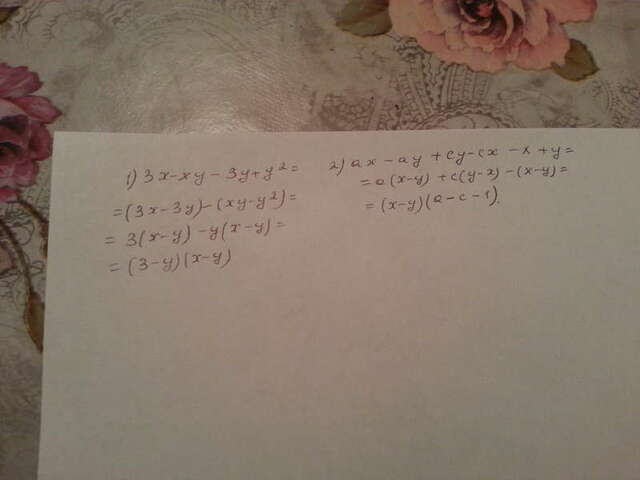 1) 3x-xy-3y+y²=
=(3x-3y)-(xy-y²)=
= 3(x-y)-y(x-y)=
= (3-y)(x-y)
2) ax-ay+cy-cx-x+y=
=a(x-y)+c(y-x)-(x-y)=
= (x-y)(a-c-1).